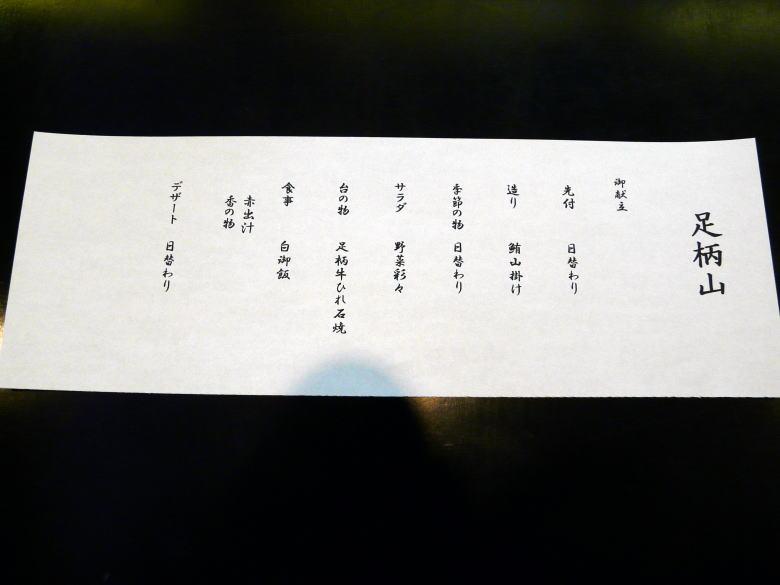 足柄山
御献立
先付　日替わり
造り　鮪山掛け
季節の物　日替わり
サラダ　野菜彩々
台の物　足柄牛ひれ石焼
食事　白御飯
赤出汁
香の物
デザート　日替わり